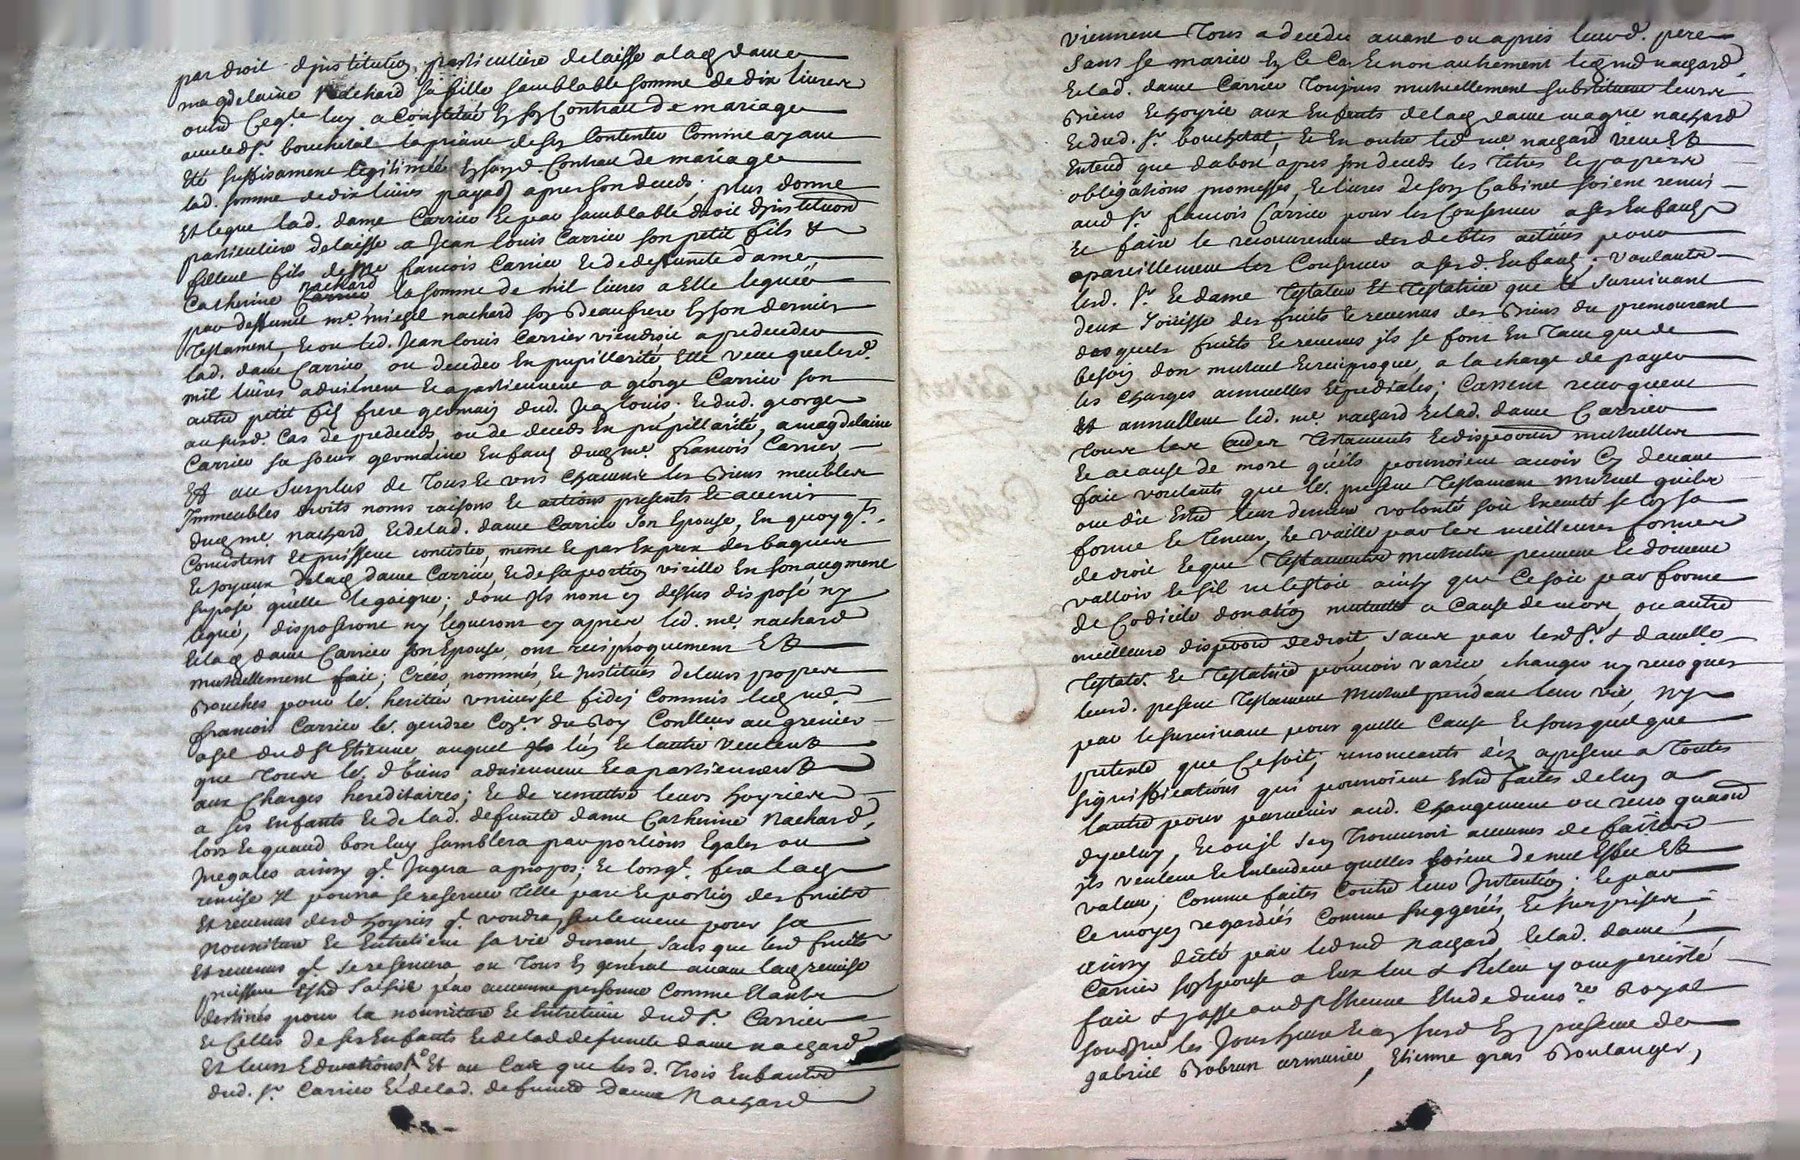 par droit d'institu͠on particuliere delaisse a lad dame
magdelaine Nachard sa fille samblable somme de dix livres
outre ce q.le luy a constitué En son Contract de mariage
avec led s.r bouchetal la priant de s'en contenter comme ayant
Eté suffisament legitimée En son d. Contrat de mariage
lad. somme de dix livres payable apres son deceds. plus donne
Et legue lad. dame Carrier Et par samblable droit d'institu͠on
particuliere delaisse a Jean Louis Carrier son petit fils &
filleul fils de m.e francois Carrier Et de deffunte dame
Catherine nachard la somme de mil livres a Elle leguée
par deffunt m.e migel nachard son Beaufrere En son dernier
Testament, Et ou led. Jean louis Carrier viendroit a predeceder
lad. dame Carrier, ou deceder En pupillarité, Elle veut que lesd.
mil livres adviennent Et apartiennent a george Carrier son
autre petit fils frere germain dud. Jean louis. Et dud. george
au susd. Cas de predeceds, ou de deceds En pupillarité, a magdelaine
Carrier sa soeur germaine Enfans dud me. francois Carrier
Et au Surplus de Tous Et uns Chacuns les Biens meubles
Immeubles droits noms raisons Et actions presents Et avenir
dud me nachard Et de lad. dame Carrier son Epouse, En quoy q.ls
Consistent Et puissent consister, meme Et par Exprex des bagues
Et Joyaux de lad dame Carrier, Et de sa portion virille En son augment
suposé qu'elle le gaigne; dont Ils n'ont cy dessus disposé ny
legué, disposeront ny legueront cy apres led. me. nachard
Et lad dame Carrier son Epouse, ont reciproquement Et
mutuellement fait; Creés, nommés, Et Institués de leurs propres
Bouches pour le. heritier universel fidei Commis led me.
francois Carrier le. gendre Con.er du Roy Conlleur au grenier
a sel dud st Etienne auquel Ils Et lautre veulent
que Tous le. d. biens adviennent Et apartiennent
aux Charges hereditaires; Et de remettre leurs hoyries
a ses Enfants Et de lad. defunte dame Catherine Nachard,
lors Et quand bon luy samblera par portions Egales ou
Inegales ainsy q.l Jugera a propos; Et lorsq.l fera lad
remise Il pourra se reserver Telle part Et portion des fruits
Et revenus desd hoyries q.l voudra, seulement pour sa
nourriture Et Entretient sa vie durant, sans que lesd fruits
Et revenus q.l se reservera, ou Tous En general avant lad remise
puissent Estre saisis par aucunne personne comme Etants
destinés pour la nourriture Et Entretient dud s.r Carrier
Et Celles de ses Enfants Et de lad defunte dame nachard
Et leurs Educations, Et au Cas que les d. Trois Enfants
dud. s.r Carrier Et de lad. defunte Dame Nachard
viennent Tous a deceder avant ou apres leurd. pere
Sans se marier En Ce Cas Et non autrement led me nachard,
Et lad. dame Carrier Toujours mutuellement substituent leurs
Biens Et hoyrie aux Enfants de lad dame magne nachard
Et dud. s.r bouchetal; Et En outre led me. nachard veut Et
Entend que d'abort apres son deceds les Titres Et papiers
obligations promesses, Et livres de son Cabinet soient remis
aud s.r francois Carrier pour les Conserver a ses Enfans
Et faire le recouvrement des debtes actives pour
apareillement les Conserver a ses d. Enfans; voulants
lesd. s.r Et dame Testateur Et Testatrice que le survivant
deux Joüisse des fruits Et revenus des Biens du premourant
desquels fruits Et revenus ils se font En Tant que de
besoin don mutuel Et reciproque, a la charge de payer
les Charges annuelles Et prediales; Cassent revoquent
Et annullent led. me. nachard Et lad. dame Carrier
Tous les autres Testaments Et dispo͠ons mutuelles
Et a cause de mort qu'ils pourroient avoir cy devant
fait voulants que le. present Testament Mutuel qu'ils
ont dit Estre leur derniere volonté soit Executé selon sa
forme Et Teneur, Et vaille par les meilleures formes
de droit Et que Testamentre mutuelle peuvent Et doivent
valloir Et s'il ne lestoit ainsy que Ce soit par forme
de Codicile donation mutuelle a Cause de mort, ou autre
meilleure dispo͠on de droit, sans par lesd s.r & damelle
Testate. Et Testatrice pouvoir varier changer ny revoquer
leurd. present Testament Mutuel pendant leur vie, ny
par le survivant pour quelle Cause Et sous quelque
pretexte que Ce soit, renonceants dez apresent a Toutes
significations qui pourroient Estre faites de lun a
lautre pour parvenir aud. Changement ou revoqua͠on
d'yceluy, Et ou Il s'en Trouveroit aucunes de faites
Ils veulent Et Entendent qu'elles soient de nul Effet Et
valeur, Comme faites Contre leur Intention; Et par
Ce moyen regardées Comme suggerées, Et surprises,
ainsy dicté par led me Nachard, Et lad. dame
Carrier son Epouse a Eux leu & Releu y ont percisté
fait & passé aud st Etienne Etude du no.re Royal
soubsne. les Jour heure Et an susd En presence de
gabriel Bobrun armurier, Etienne gras Boulanger,